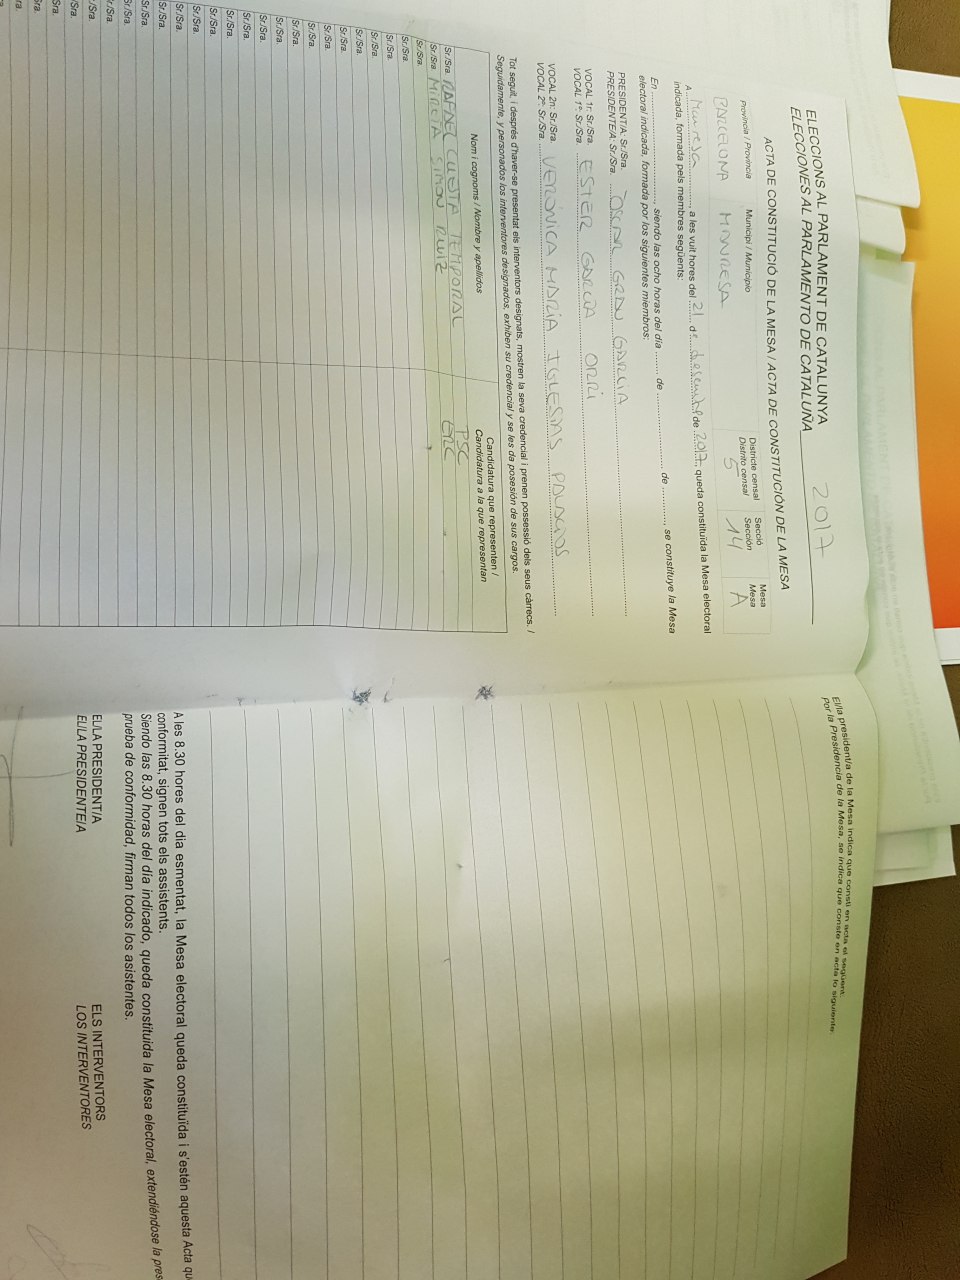 ELECCIONS AL PARLAMENT DE CATALUNYA
ELECCIONES AL PARLAMENTO DE CATALUÑA 2017
ACTA DE CONSTITUCIÓ DE LA MESA / ACTA DE CONSTITUCIÓN DE LA MESA
Província / Provincia Municipi / Municipio Districte censal Secció Mesa
Distrito censal Sección Mesa
BARCELONA MANRESA 5 14 A
A Manresa, a les vuit hores del 21 de desembre de 2017, queda constituïda la Mesa electoral
indicada, formada pels membres següents:
En, siendo las ocho horas del día de de, se constituye la Mesa
electoral indicada, formada por los siguientes miembros:
PRESIDENT/A: Sr./Sra.
PRESIDENTE/A: Sr./Sra. OSCAR GRAU GARCIA
VOCAL 1r: Sr./Sra.
VOCAL 1º: Sr./Sra. ESTER GARCIA ORRI
VOCAL 2n: Sr./Sra.
VOCAL 2º: Sr./Sra. VERÓNICA MARIA IGLESIAS
Tot seguit, i després d'haver-se presentat els interventors designats, mostren la seva credencial i prenen possessió dels seus càrrecs. /
Seguidamente, y personados los interventores designados, exhiben su credencial y se les da posesión de sus cargos.
Nom i cognoms / Nombre y apellidos Candidatura que representen /
Candidatura a la que representan
Sr./Sra. RAFAEL CUESTA TEMPORAL PSC
Sr./Sra. MIREIA SIMON RUIZ ERC
Sr./Sra.
Sr./Sra.
Sr./Sra.
Sr./Sra.
Sr./Sra.
Sr./Sra.
Sr./Sra.
Sr./Sra.
Sr./Sra.
Sr./Sra.
Sr./Sra.
Sr./Sra.
Sr./Sra.
Sr./Sra.
Sr./Sra.
Sr./Sra.
Sr./Sra.
Sr./Sra.
Sr./Sra.
Sr./Sra.
Sr./Sra.
Sr./Sra.
El/la president/a de la Mesa indica que consti en acta el següent:
Por la Presidencia de la Mesa, se indica que conste en acta lo siguiente:
A les 8.30 hores del dia esmentat, la Mesa electoral queda constituïda i s'estén aquesta Acta
conformitat, signen tots els assistents.
Siendo las 8.30 horas del día indicado, queda constituida la Mesa electoral, extendiéndose la
prueba de conformidad, firman todos los asistentes.
EL/LA PRESIDENT/A ELS INTERVENTORS
EL/LA PRESIDENTE/A LOS INTERVENTORES